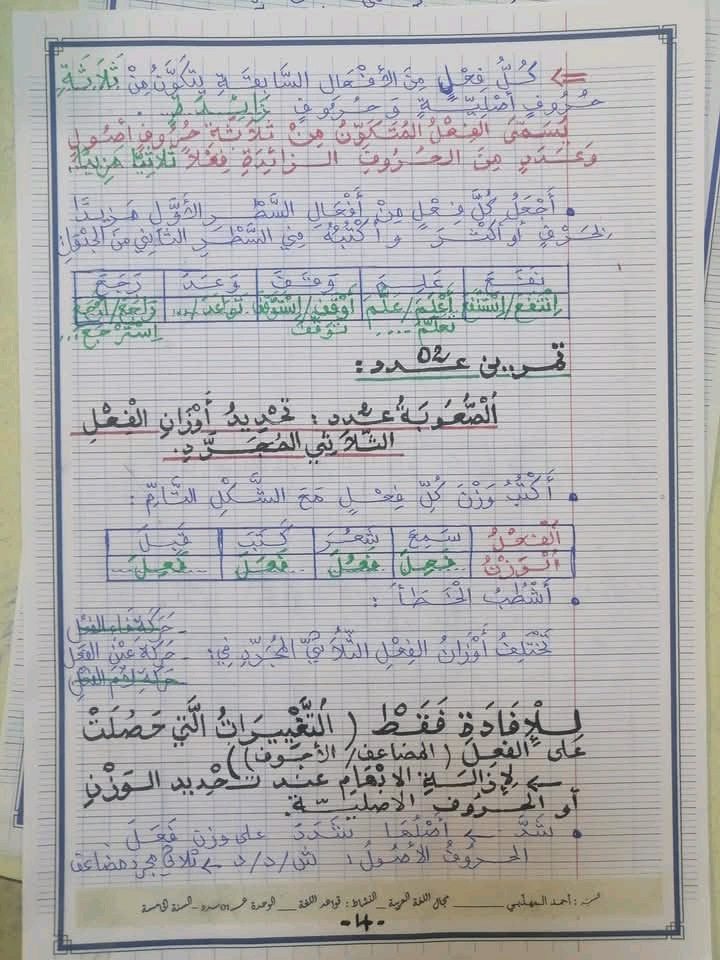 ⇐ كُلُّ فِعْلٍ مِنَ الأَفْعَالِ السَّابِقَةِ يَتَكَوَّنُ مِنْ ثَلَاثَةِ
حُرُوفٍ أَصْلِيَّةٍ وَ حُرُوفٍ زَائِدَةٍ.
يُسَمَّى الفِعْلُ المُتَكَوِّنُ مِنْ ثَلَاثَةِ حُرُوفٍ أُصُولٍ
وَعَدَدٍ مِنَ الحُرُوفِ الزَّائِدَةِ فِعْلًا ثُلَاثِيًّا مَزِيدًا.
• أَجْعَلُ كُلَّ فِعْلٍ مِنْ أَفْعَالِ السَّطْرِ الأَوَّلِ مَزِيدًا
بِحَرْفٍ أَوْ أَكْثَرَ وَ أَكْتُبُهُ فِي السَّطْرِ الثَّانِي مِنَ الجَدْوَلِ
نَفَعَ عَلِمَ وَقَفَ وَعَدَ رَجَعَ
اِنْتَفَعَ/اِسْتَنْفَعَ أَعْلَمَ/عَلَّمَ أَوْقَفَ/اِسْتَوْقَفَ تَوَاعَدَ/.... رَاجَعَ/أَرْجَعَ
تَعَلَّمَ .... تَوَقَّفَ اِسْتَرْجَعَ...
تمرين عـدد 02 :
الصُّعُوبَةُ عـدد : تَحْدِيدُ أَوْزَانِ الفِعْلِ
الثُّلَاثِيِّ المُجَرَّدِ.
• أَكْتُبُ وَزْنَ كُلِّ فِعْلٍ مَعَ الشَّكْلِ التَّامِّ :
الْفِعْلُ سَمِعَ شَعُرَ كَتَبَ قَبِلَ
الْوَزْنُ فَعِلَ فَعُلَ فَعَلَ فَعِلَ
• أَشْطُبُ الخَطَأَ :
- حَرَكَة فَاء الفِعْلِ
تَخْتَلِفُ أَوْزَانُ الفِعْلِ الثُّلَاثِيِّ المُجَرَّدِ فِي: - حَرَكَة عَيْنِ الفِعْلِ
- حَرَكَة لَامِ الفِعْلِ
لِلْإِفَادَةِ فَقَطْ ( التَّغْيِيرَاتُ الَّتِي حَصَلَتْ
عَلَى الفِعْلِ (المضاعف/الأجوف))
← لِإِزَالَةِ الإِبْهَامِ عِنْدَ تَحْدِيدِ الوَزْنِ
أَوْ الحُرُوفِ الأَصْلِيَّةِ.
• شَدَّ ← أَصْلُهَا شَدَدَ على وزن فَعَلَ
الحروفُ الأصُولُ: ش/د/د ← ثلاثي مجرد مضاعف
أحمد المهلبي ـــ مجال اللغة العربية ـ النشاط: قواعد اللغة ـ الوحدة
-14-